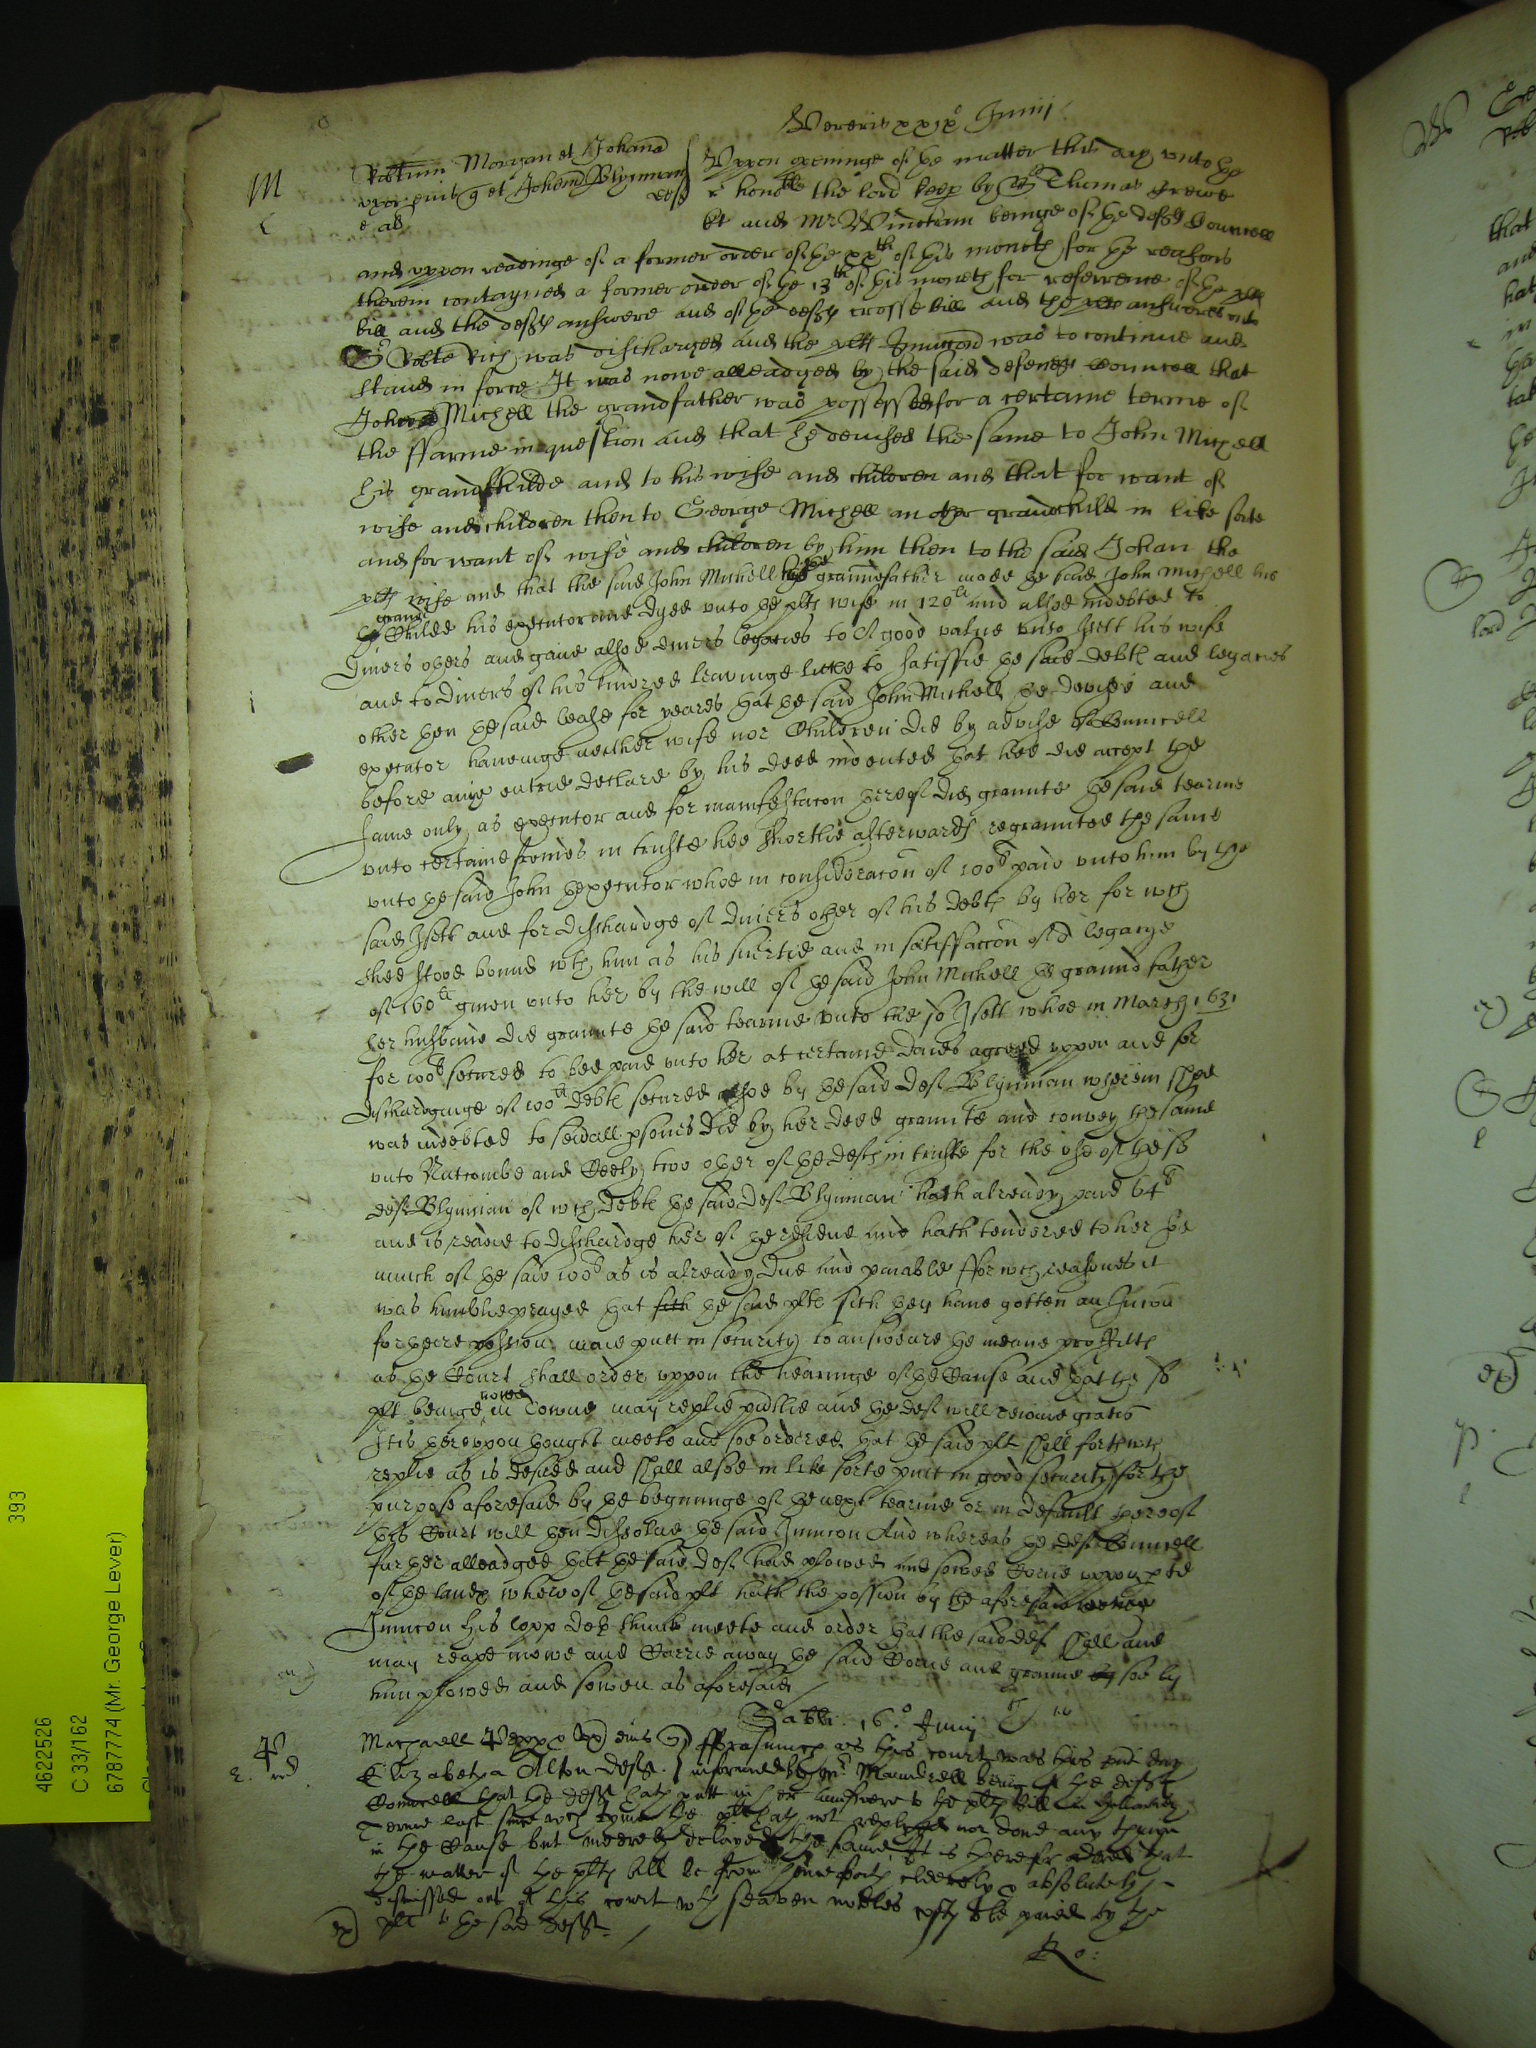 Veneris xxixo Junij
M
Robtum Morgan et Johann
uxor eius q et Johem Blynman
e al
defs
Uppon openinge of the matter this day unto the
r honoble the lord keep by Sr Thomas Crewe
kt and Mr Wincham beinge of the defts Councell
and uppon readinge of a former order of the xxth of this moneth for the reasons
therein contayned a former order of the 13th of this moneth for reference of the plts
bill and the defts answere and of the defts crosse bill and the plts answeres unto
Sr Robte Rich was discharged and the plts Iniuncon was to continue and
stand in force It was nowe alleadged by the said defend Councell that
John Michell the grandfather was possessed for a certaine terme of
the ffarme in question and that he devised the same to John Michell
his grandchilde and to his wife and children and that for want of
wife and children then to George Michell an other grandchild in like sorte
and for want of wife and children by him then to the said Johan the
plts wife and that the said John Michell the grandfather made the said John Michell his
grand
Childe his executor and dyed unto the plts wife in 120li and alsoe indebted to
divers others and gave alsoe divers legacies to a good value unto Isett his wife
and to divers of his kindred leavinge little to satisfie the said debts and legacies
other then the said lease for yeares that the said John Michell the devisee and
executor haveinge neither wife nor Children did by advise of Councell
before anie entrie declare by his deed indented that hee did accept the
same only as executor and for manifestacon thereof did graunte the said tearme
unto certaine friends in truste hee shortlie afterwards regraunted the same
unto the said John the executor whoe in consideracon of 100li paid unto him by the
said Isett and for dischardge of divers other of his debts by her for wch
shee stood bound wth him as his suertie and in satisfaccon of a legacye
of 100li given unto her by the will of the said John Michell the grandfather
her husband did graunte the said tearme unto the sd Isett whoe in March 1631
for 100li secured to bee paid unto her at certaine daies agreed uppon and for
dischardginge of 100li debts secured alsoe by the said deft Blynman wherein shee
was indebted to seuall psons did by her deed graunte and convey the same
unto Natcombe and Seely two other of the defts in truste for the use of the sd
deft Blynman of wch debts the said deft Blynman hath already paid 64li
and is readie to dischardge her of the residue and hath tendered to her soe
much of the said 100li as is already due and paiable ffor wch reasons it
was humblie prayed that sith the said plts sith they have gotten an Iniucon
for there possion maie putt in security to answeare the meane proffitts
as the Court shall order uppon the hearinge of the Cause and that the sd
plt beinge nowe in Towne may replie publie and the deft will reioine gratis
It is hereuppon thought meete and soe ordered that the said plt shall forthwth
replie as is desired and shall alsoe in like sorte putt in good security for the
purpose aforesaid by the beginninge of the next tearme or in default thereof
this Court will then dissolve the said Iniuncon And whereas the defts Councell
further alleadged that the said deft had plowed and sowed Corne uppon pte
of the lands whereof the said plt hath the possion by the aforesaid
Iniuncon his lopp doth think meete and order that the said deft shall and
may reape mowe and Carrie away the said Corne and graine soe by
him plowed and sowen as aforesaid
Sabbi 16o Junij
Machaell Pepp Vx eius q
Elizabetha Alton deft
fforasmuch as this court was this pnt day
informed by Mr Maundrell being of the defts
Councell that the deft hath putt in her aunswere to the plts bill in
Terme last since wch tyme the plt hath not replyed nor done any thinge
in the Cause but meerely delayed the same It is therefore ordered that
the matter of the plts bill be from henceforth cleerely & absolutely
dismissed out of this court wth seaven nobles costs to be paied by the
plt to the said deft
Ro:
393
4622526
C 33/162
6787774 (Mr. George Lever)